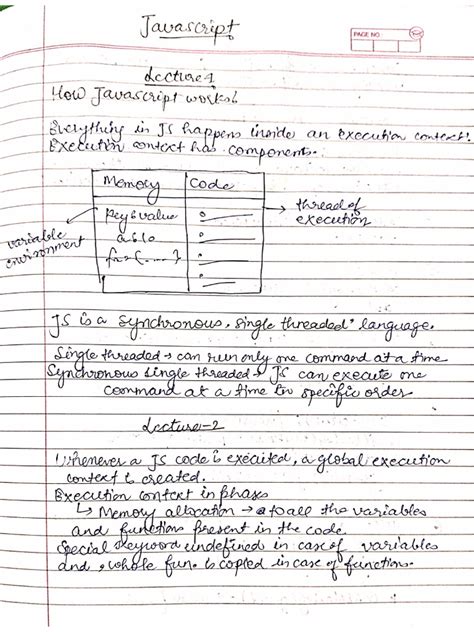 Javascript
PAGE NO
Lecture-1
How Javascript works!
Everything in JS happens inside an execution context!
Execution context has components.
Memory Code
key & value
a: 10
fn={....}
variable environment
thread of execution
JS is a synchronous, single threaded language.
Single threaded → can run only one command at a time
Synchronous single threaded → JS can execute one
command at a time in specific order
Lecture-2
Whenever a JS code is executed, a global execution
context is created.
Execution context in phases
↳ Memory allocation → to all the variables
and function present in the code.
Special keyword undefined in case of variables
and, whole fun. is copied in case of function.